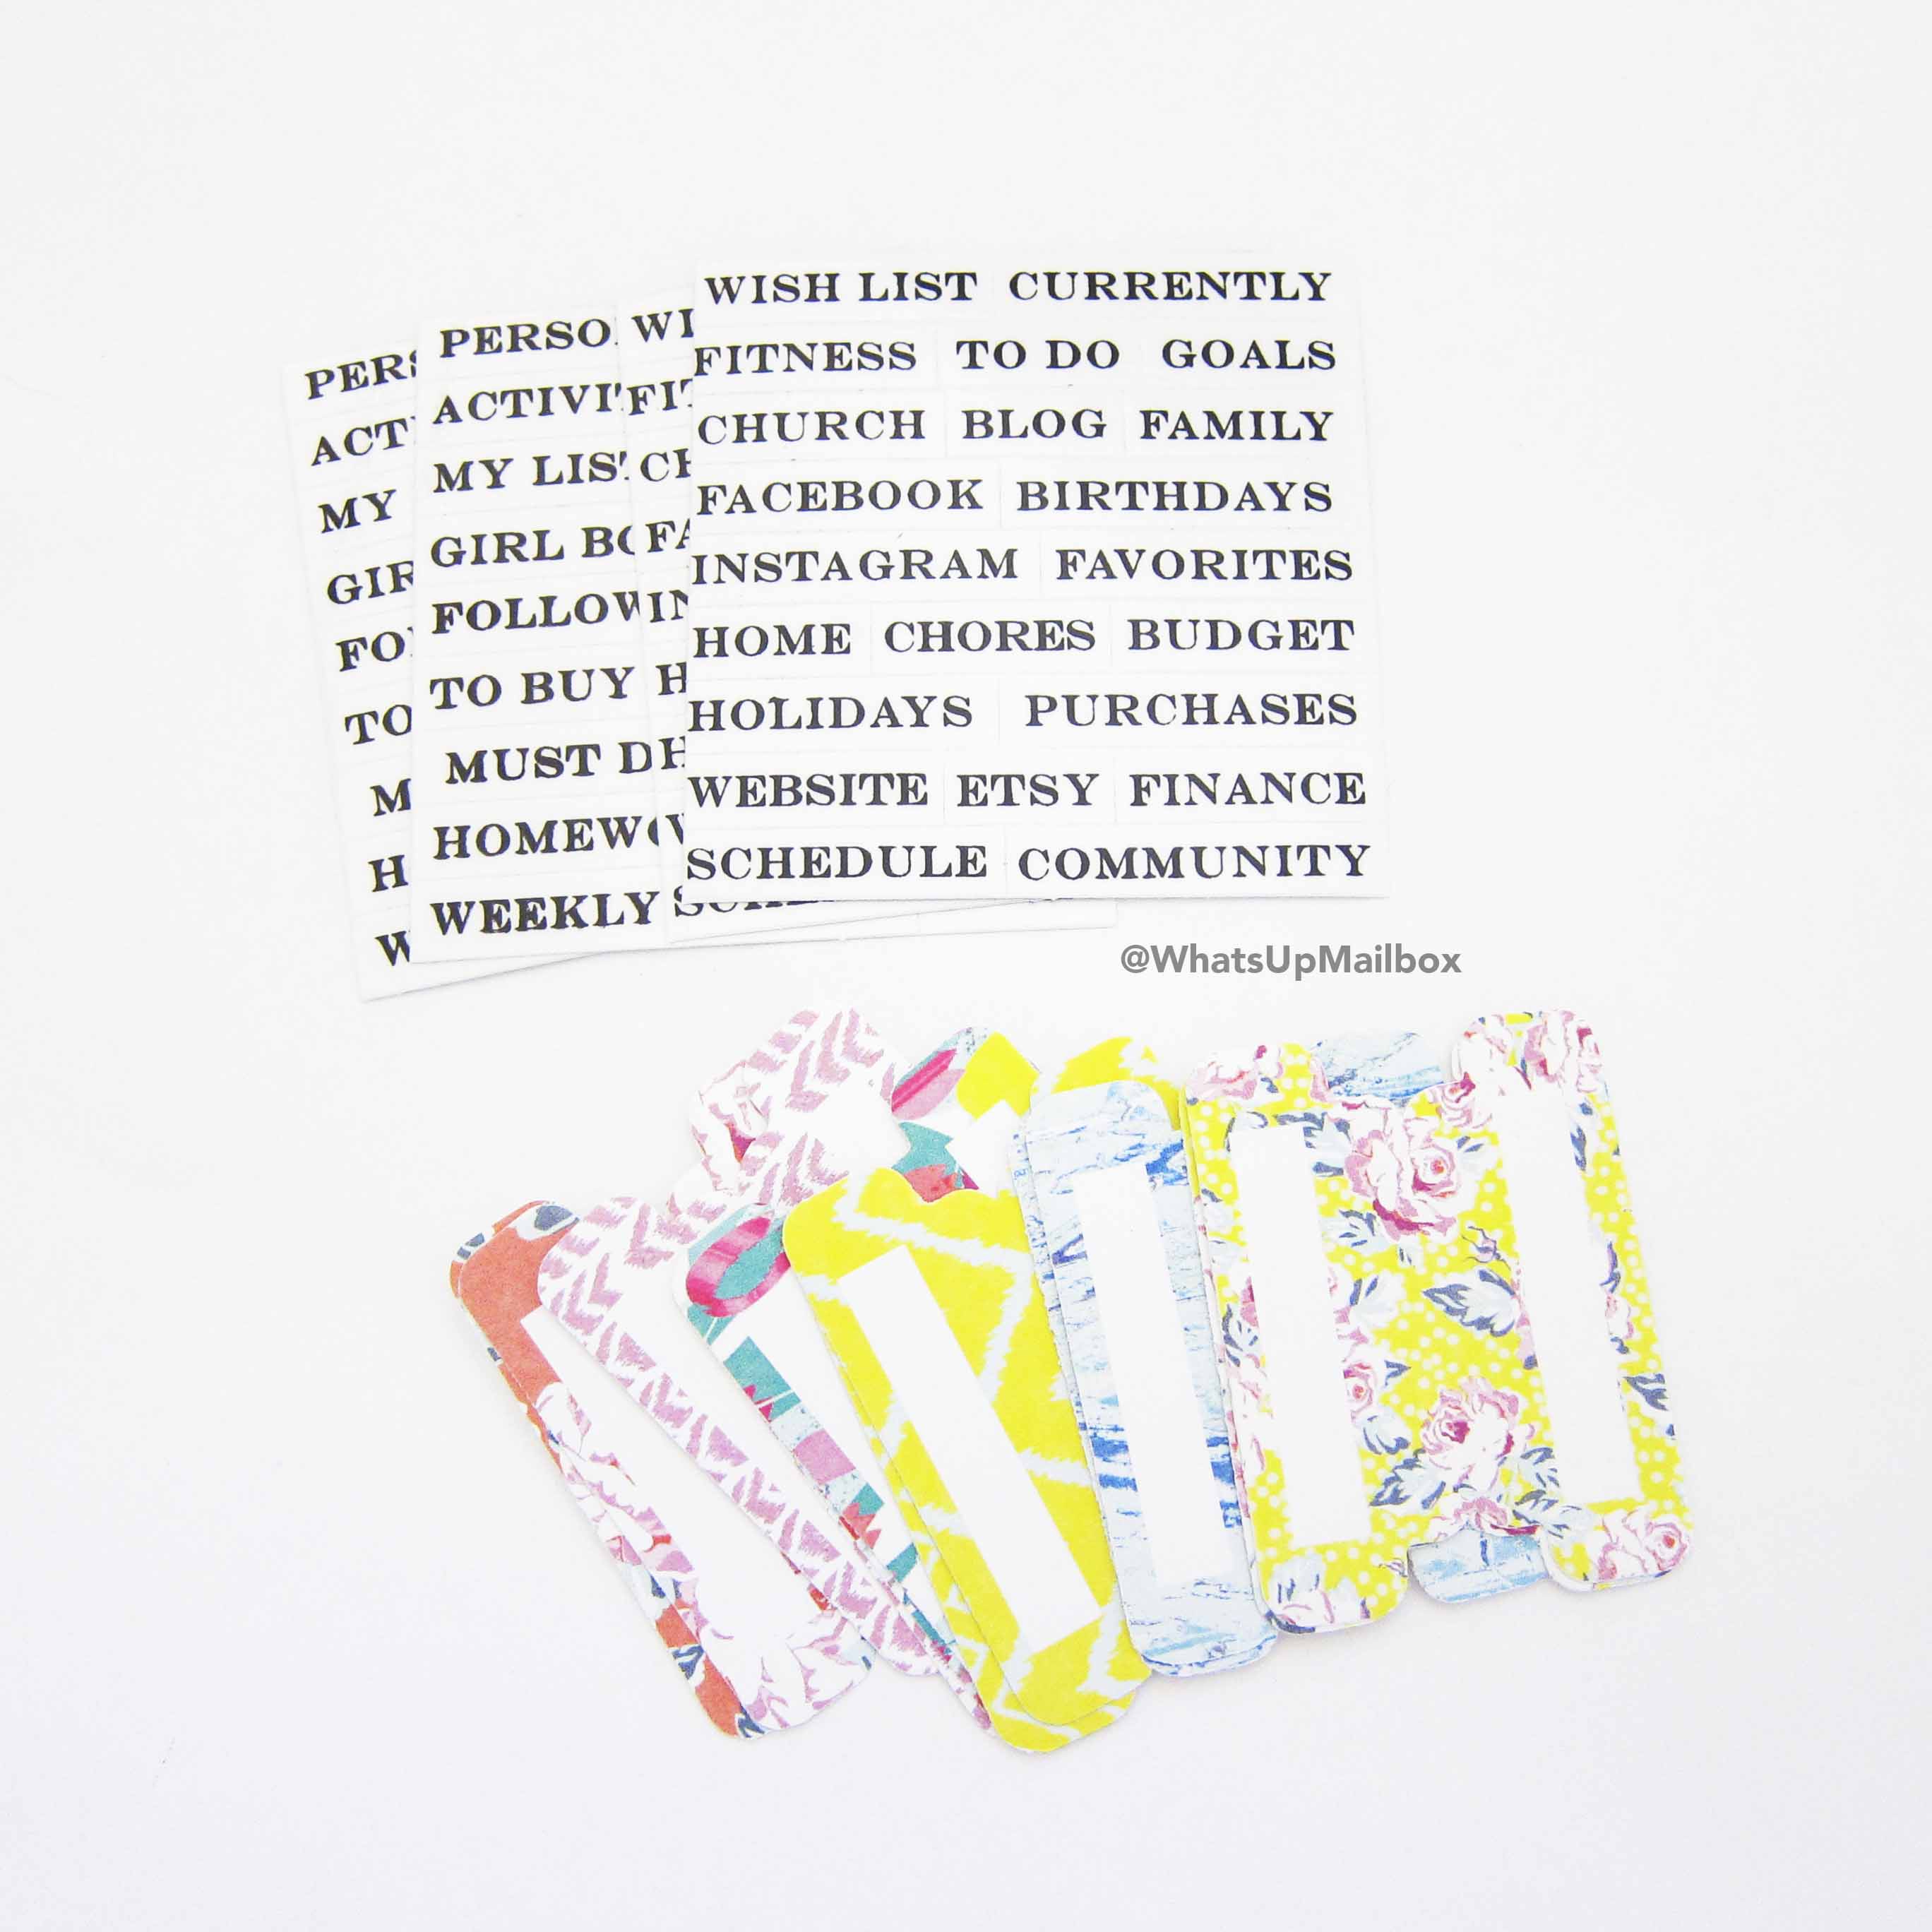 WISH LIST CURRENTLY
FITNESS TO DO GOALS
CHURCH BLOG FAMILY
FACEBOOK BIRTHDAYS
INSTAGRAM FAVORITES
HOME CHORES BUDGET
HOLIDAYS PURCHASES
WEBSITE ETSY FINANCE
SCHEDULE COMMUNITY
WI
FIT
CH
FA
IN
H
H
W
PERSO
ACTIVI
MY LIS
GIRL BO
FOLLOW
TO BUY
MUST D
HOMEWO
WEEKLY
PERS
ACT
MY
GIR
FO
TO
M
H
W
@WhatsUpMailbox